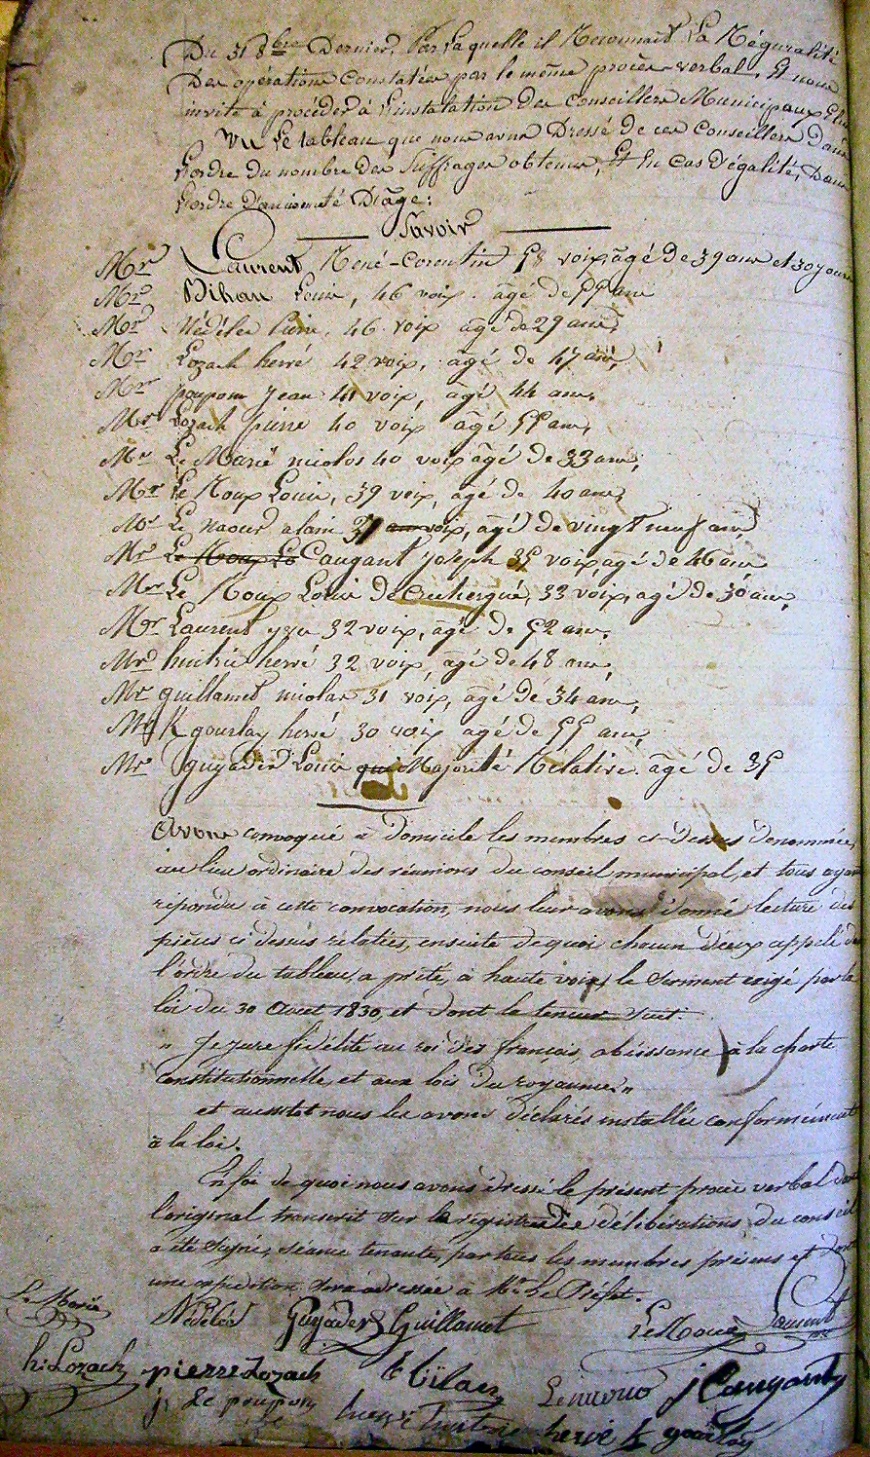 Du 31 8bre Dernier. Par laquelle il Reconnait La Régularité
Des opérations constatées par le même procès-verbal, Et nous
invite à procéder à L'instalation des Conseillers Municipaux Elus
Vu Le tableau que nous avons Dressé de ces Conseillers dans
L'ordre du nombre des Suffrages obtenus, Et En Cas d'égalité, Dans
L'ordre D'ancienneté D'âge:
Savoir
Mr Laurent René-Corentin 58 voix, âgé de 39 ans et 30 jours
Mr Bihan Louis, 46 voix. âgé de 55 ans
Mr Nédélec Pierre, 46 voix âgé de 29 ans,
Mr Lozach hervé 42 voix, âgé de 47 ans,
Mr poupon Jean 41 voix, âgé 44 ans,
Mr Lozach pierre 40 voix âgé 55 ans,
Mr Le Marié nicolas 40 voix âgé de 33 ans,
Mr Le Roux Louis, 39 voix, âgé de 40 ans,
Mr Le naour alain voix, âgé de vingt neuf ans
Mr Le Roux Lo Caugant Joseph 35 voix agé de 46 ans
Mr Le Roux Louis de 33 voix, agé de 30 ans,
Mr Laurent yves 32 voix, âgé de 52 ans,
Mr huitric hervé 32 voix, âgé de 48 ans,
Mr guillamet nicolas 31 voix, âgé de 34 ans,
Mr K gourlay hervé 30 voix agé de 55 ans,
Mr guyader Louis Majorité Rélative. âgé de 35
Avons convoqué à domicile les membres ci-dessus denommés,
au lieu ordinaire des réunions du conseil municipal, et tous ayant
répondu à cette convocation, nous leur avons donné lecture des
pièces ci dessus rélatées, ensuite de quoi chacun d'eux appelé dans
l'ordre du tableau, a prêté, à haute voix, le serment exigé par la
loi du 30 Aout 1830, et dont la teneur suit.
" Je jure fidélité au roi des français, obéissance à la charte
constitutionnelle, et aux lois du royaume."
et aussitot nous les avons déclarés installés conformément
à la loi.
En foi de quoi nous avons dressé le présent procès verbal dont
l'original transcrit sur le registre des délibérations du conseil
a été signé, séance tenante, par tous les membres présens et dont
une expédition sera adressée à Mr Le Préfet.
Le Marié Nédélec Guyader Guillamet Le Roux Laurent
h: Lozach pierre Lozach L Bihan Le naour j Caugant
j. Le poupon hervé huitric hervé K gourlay